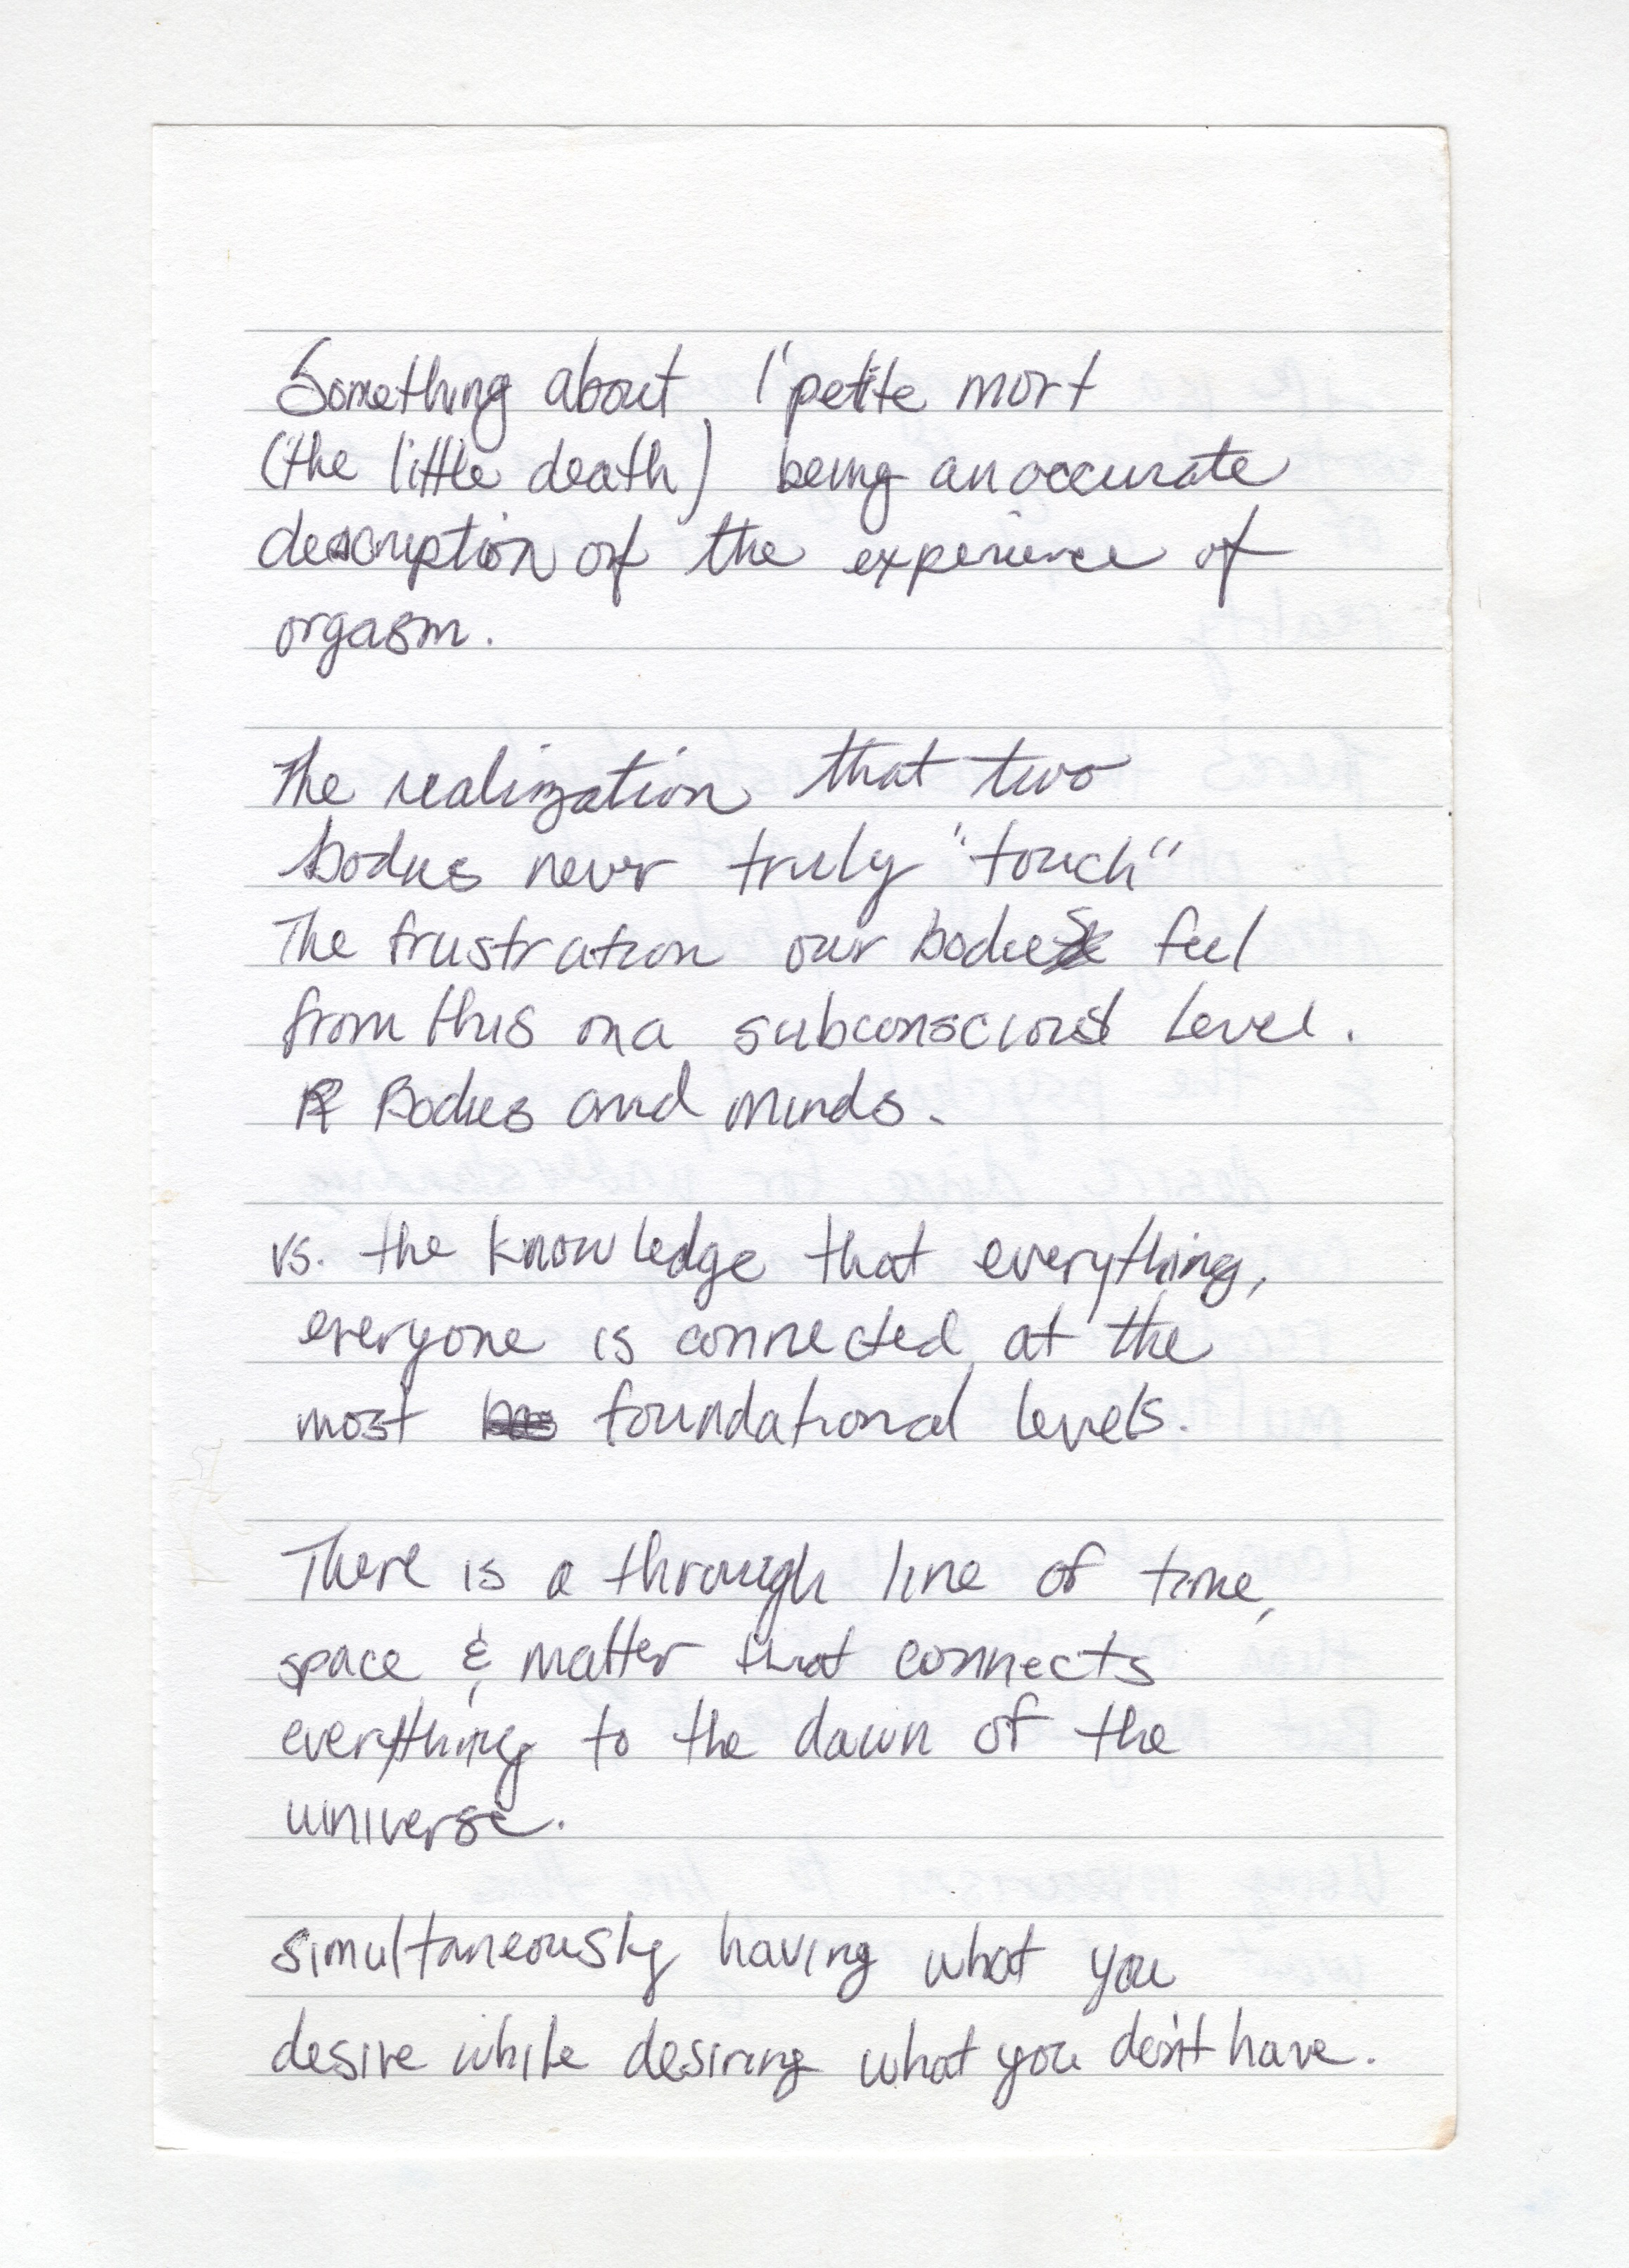 Something about l'petite mort
(the little death) being an accurate
description of the experience of
orgasm.
The realization that two
bodies never truly "touch"
The frustration our bodies feel
from this on a subconscious level.
Bodies and minds.
vs. the knowledge that everything,
everyone is connected at the
most foundational levels.
There is a through line of time,
space & matter that connects
everything to the dawn of the
universe.
simultaneously having what you
desire while desiring what you don't have.